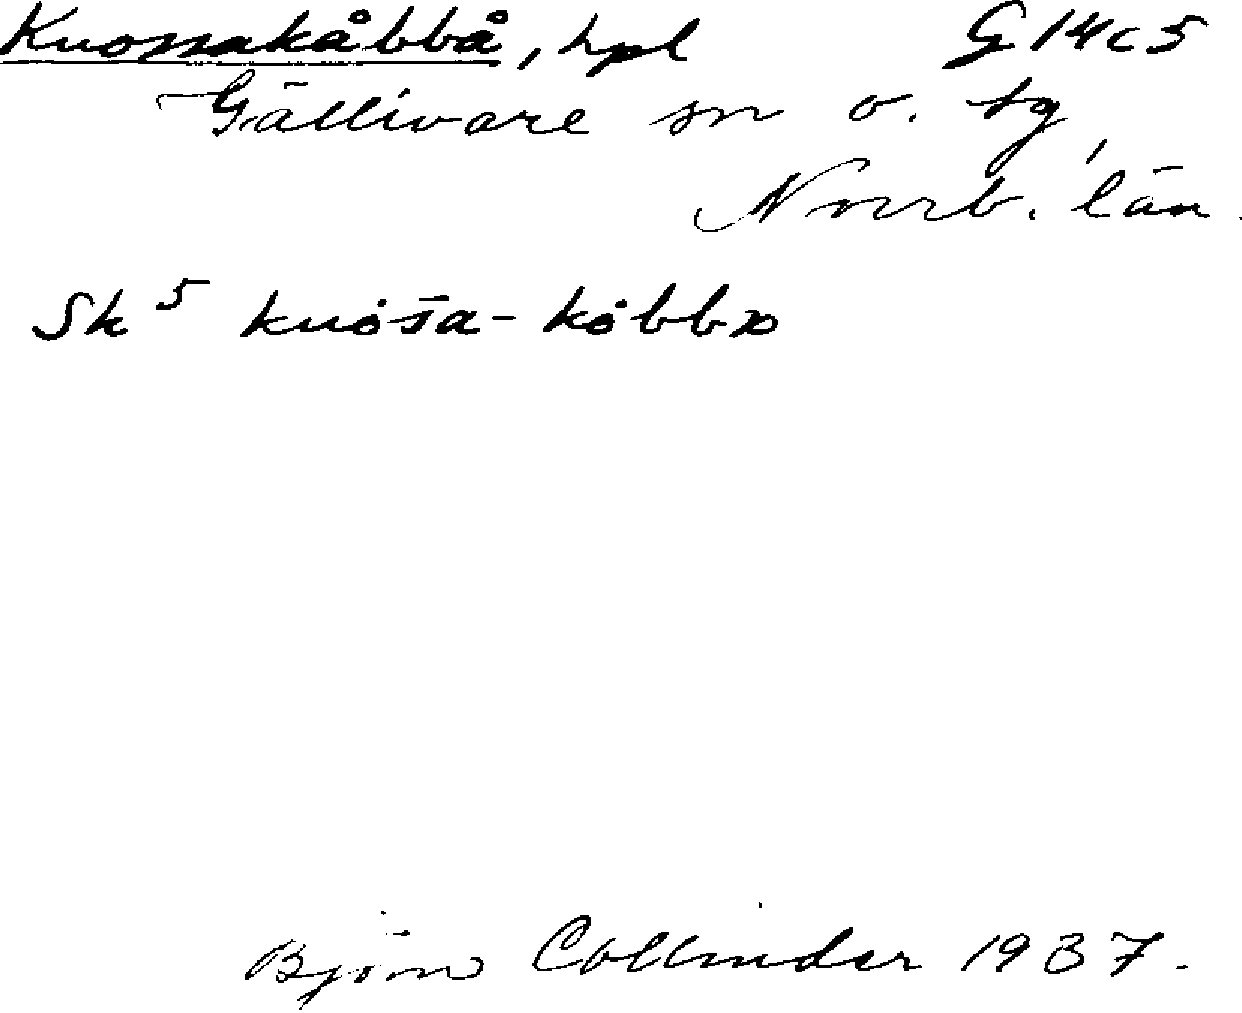 Kuossakåbbå, hpl G 14 c 5
Gällivare sn o. tg,
Norrb. län.
Sk 5 kuȯs̄a-kȯbbɔ
Björn Collinder 1937.